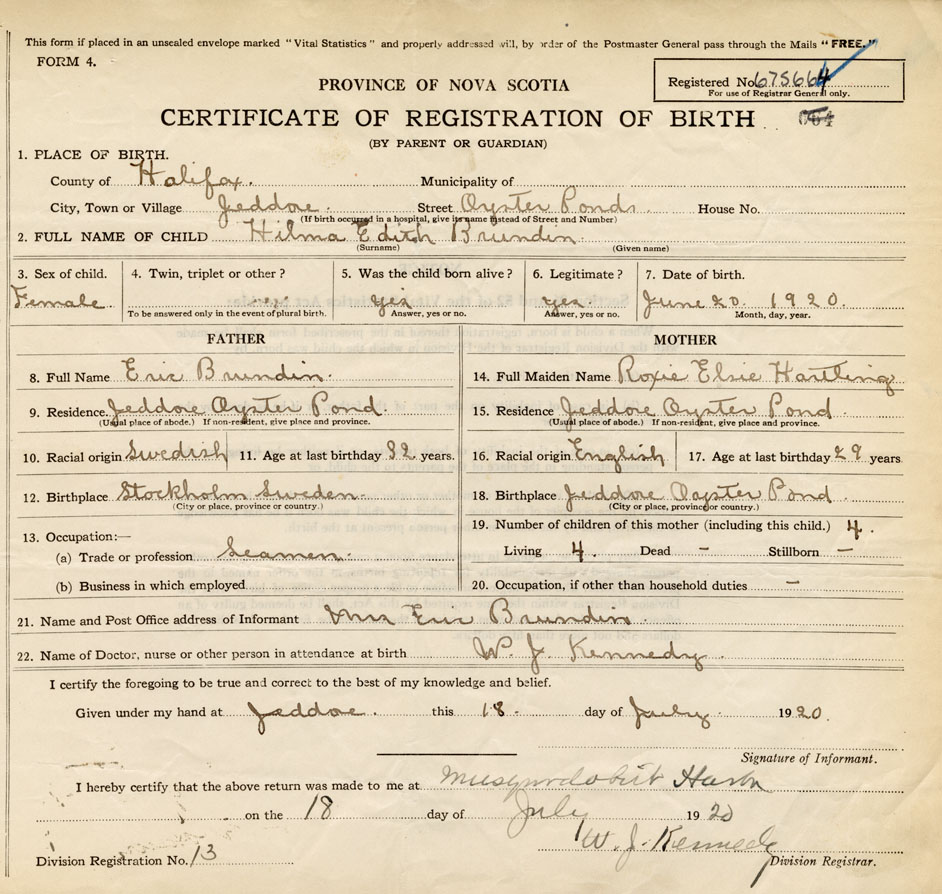 This form if placed in an unsealed envelope marked "Vital Statistics" and properly addressed will, by order of the Postmaster General pass through the Mails "FREE."
FORM 4.
Registered No. 675664
For use of Registrar General only.
PROVINCE OF NOVA SCOTIA
CERTIFICATE OF REGISTRATION OF BIRTH
(BY PARENT OR GUARDIAN)
1. PLACE OF BIRTH.
County of Halifax. Municipality of
City, Town or Village Jeddore. Street Oyster Ponds. House No.
(If birth occurred in a hospital, give its name instead of Street and Number)
2. FULL NAME OF CHILD Hilma Edith Brundin.
(Surname) (Given name)
3. Sex of child. 4. Twin, triplet or other? 5. Was the child born alive? 6. Legitimate? 7. Date of birth.
Female. yes yes. June 20. 1920.
To be answered only in the event of plural birth. Answer, yes or no. Answer, yes or no. Month, day, year.
FATHER
8. Full Name Eric Brundin.
9. Residence. Jeddore Oyster Pond.
(Usual place of abode.) If non-resident, give place and province.
10. Racial origin Swedish 11. Age at last birthday 32 years.
12. Birthplace Stockholm Sweden.
(City or place, province or country.)
13. Occupation:—
(a) Trade or profession Seamen.
(b) Business in which employed
MOTHER
14. Full Maiden Name Roxie Elsie Hartling
15. Residence Jeddore Oyster Pond.
(Usual place of abode.) If non-resident, give place and province.
16. Racial origin English 17. Age at last birthday 29 years
18. Birthplace Jeddore Oayster Pond.
(City or place, province or country.)
19. Number of children of this mother (including this child.) 4.
Living 4. Dead – Stillborn –
20. Occupation, if other than household duties –
21. Name and Post Office address of Informant Mrs Eric Brundin.
22. Name of Doctor, nurse or other person in attendance at birth W. J. Kennedy.
I certify the foregoing to be true and correct to the best of my knowledge and belief.
Given under my hand at Jeddore. this 18. day of July. 1920.
Signature of Informant.
I hereby certify that the above return was made to me at Musquodoboit Harbor
on the 18 day of July 1920
W. J. Kennedy
Division Registration No. 13 Division Registrar.